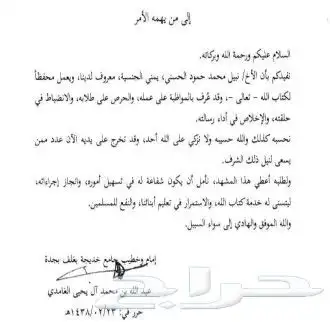 إلى من يهمه الأمر
السلام عليكم ورحمة الله وبركاته.
نفيدكم بأن الأخ/ نبيل محمد حمود الحسني، يمني الجنسية، معروف لدينا، ويعمل محفظاً
لكتاب الله - تعالى -، وقد عُرف بالمواظبة على عمله، والحرص على طلابه، والانضباط في
حلقته، والإخلاص في أداء رسالته.
نحسبه كذلك والله حسيبه ولا نزكي على الله أحد، وقد تخرج على يديه الآن عدد ممن
يسعى لنيل ذلك الشرف.
ولطلبه أعطي هذا المشهد، نأمل أن يكون شفاعة له في تسهيل أموره، وانجاز إجراءاته،
ليتسنى له خدمة كتاب الله، والاستمرار في تعليم أبنائنا، والنفع للمسلمين.
والله الموفق والهادي إلى سواء السبيل.
إمام وخطيب جامع خديجة بغلف بجدة
عبد الله بن محمد آل يحيى الغامدي
حرر في: ١٤٣٨/٠٢/٢٣هـ
حراج